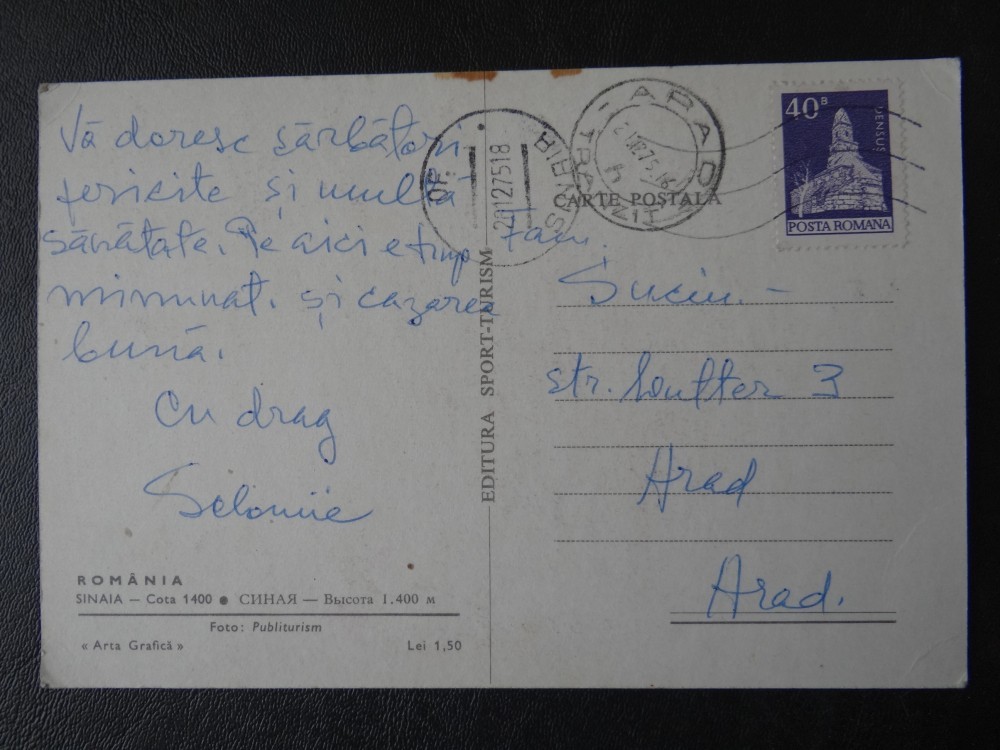 Vă doresc sărbători
fericite și multă
sănătate. Pe aici e timp
minunat. și cazarea
bună.
Cu drag
ROMÂNIA
SINAIA — Cota 1400 ● СИНАЯ — Высота 1.400 м
Foto: Publiturism
« Arta Grafică »
Lei 1,50
EDITURA SPORT-TURISM
OF.
SIBIU
20.12.75 18
- ARAD -
TRANZIT
CARTE POȘTALĂ
40 B
DENSUȘ
POSTA ROMANA
Fam.
Suciu. -
str. 3
Arad
Arad.